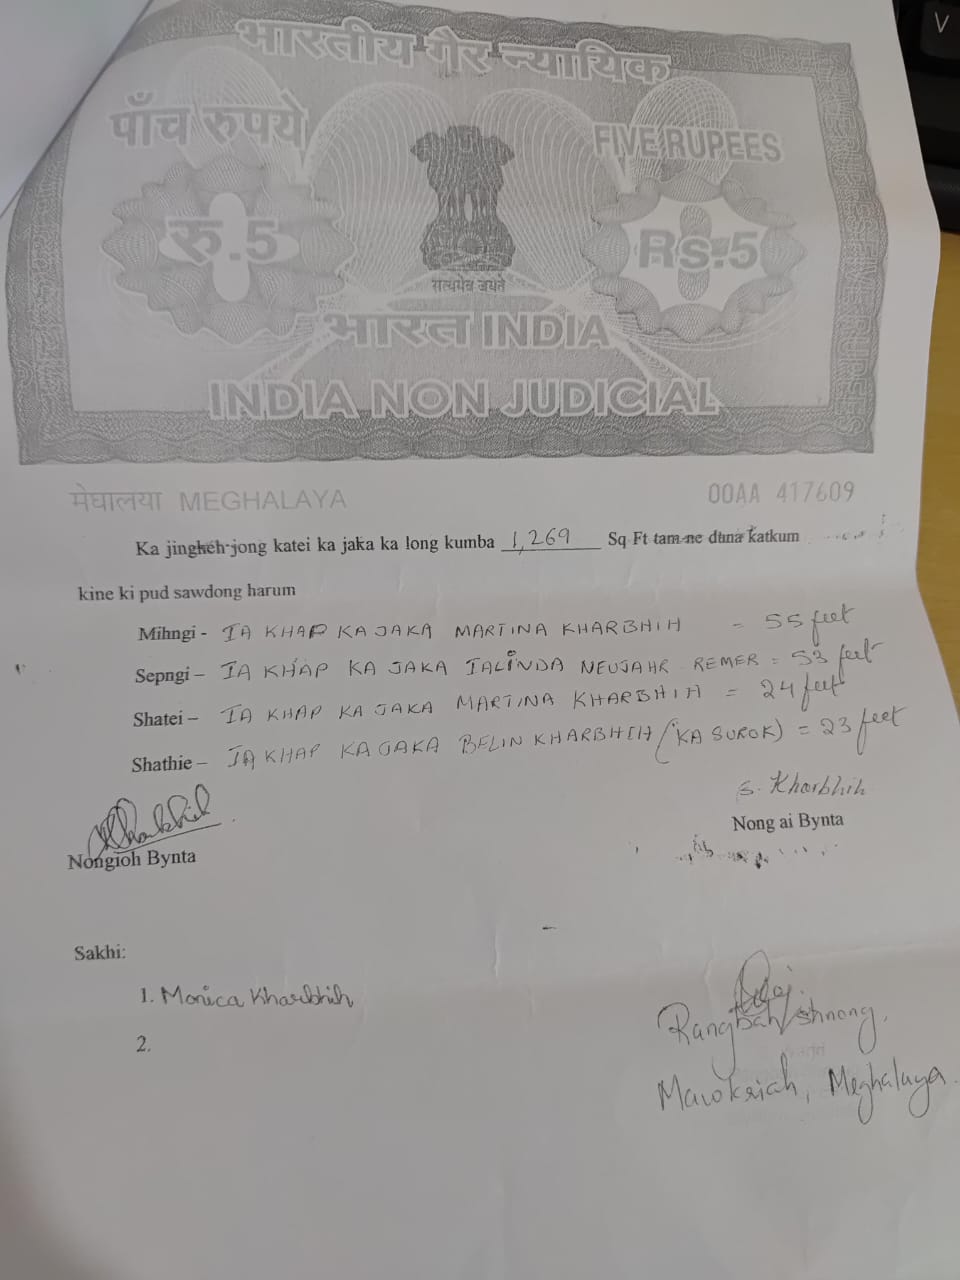 भारतीय गैर न्यायिक
पाँच रुपये
FIVE RUPEES
रु.5
Rs.5
सत्यमेव जयते
भारत INDIA
INDIA NON JUDICIAL
मेघालया MEGHALAYA
00AA 417609
Ka jingkeh jong katei ka jaka ka long kumba 1,269 Sq Ft tam ne duna katkum
kine ki pud sawdong harum
Mihngi - IA KHAP KA JAKA MARTINA KHARBHIH = 55 feet
Sepngi – IA KHAP KA JAKA IALINDA NEUJAHR REMER = 53 feet
Shatei – IA KHAP KA JAKA MARTINA KHARBHIH = 24 feet
Shathie – IA KHAP KA JAKA BELIN KHARBHIH (KA SUROK) = 23 feet
S. Kharbhih
Nong ai Bynta
Nongioh Bynta
Sakhi:
1. Monica Kharbhih
2.
Rangbah shnong,
Mawkriah, Meghalaya.